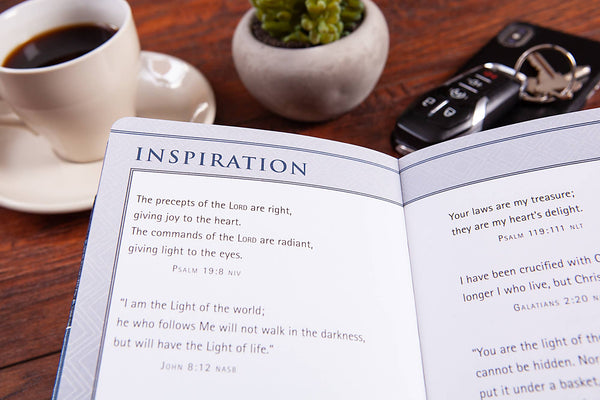 INSPIRATION
The precepts of the LORD are right,
giving joy to the heart.
The commands of the LORD are radiant,
giving light to the eyes.
PSALM 19:8 NIV
"I am the Light of the world;
he who follows Me will not walk in the darkness,
but will have the Light of life."
JOHN 8:12 NASB
Your laws are my treasure;
they are my heart's delight.
PSALM 119:111 NLT
I have been crucified with
longer I who live, but
GALATIANS 2:20
"You are the light of
cannot be hidden.
put it under a basket,